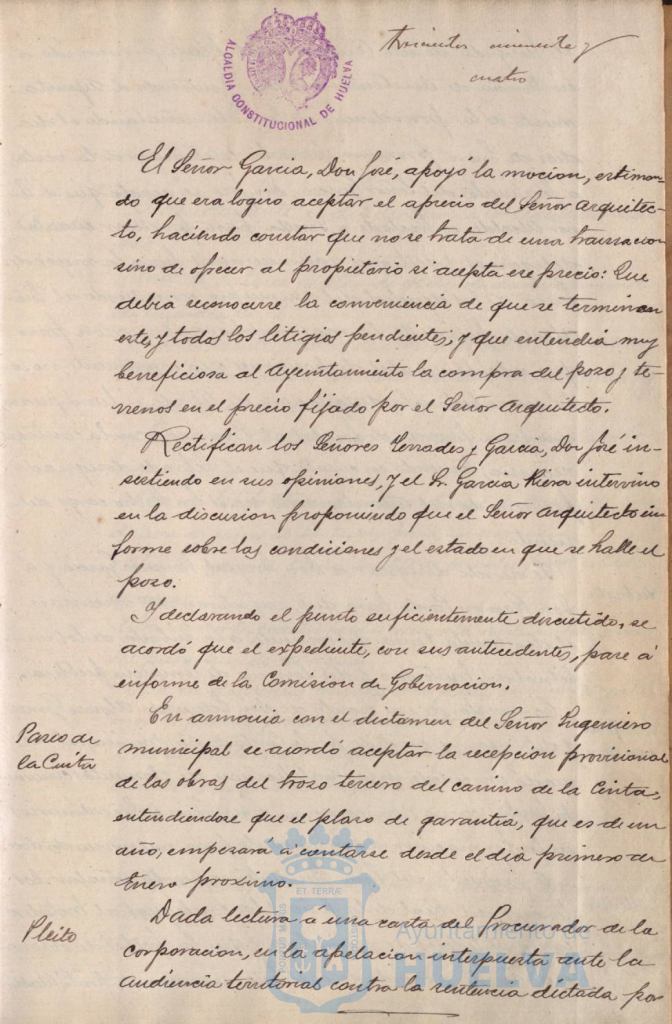 ALCALDIA CONSTITUCIONAL DE HUELVA
trescientos cincuenta y
cuatro
El Señor Garcia, Don José, apoyó la mocion, estiman-
do que era logico aceptar el aprecio del Señor Arquitec-
to, haciendo constar que no se trata de una transaccion
sino de ofrecer al propietario si acepta ese precio: Que
debia reconocerse la conveniencia de que se terminen
este, y todos los litigios pendientes, y que entendia muy
beneficiosa al Ayuntamiento la compra del pozo y te-
rrenos en el precio fijado por el Señor Arquitecto.
Rectifican los Señores Terrades y Garcia, Don José in-
sistiendo en sus opiniones, y el Sr. Garcia Riera intervino
en la discusion proponiendo que el Señor Arquitecto in-
forme sobre las condiciones y el estado en que se halle el
pozo.
Y declarando el punto suficientemente discutido, se
acordó que el expediente, con sus antecedentes, pase á
informe de la Comision de Gobernacion.
Paseo de
la Cinta
En armonia con el dictamen del Señor Ingeniero
municipal se acordó aceptar la recepcion provisional
de las obras del trozo tercero del camino de la Cinta,
entendiendose que el plazo de garantia, que es de un
año, empezará á contarse desde el dia primero de
Enero proximo.
Pleito
Dada lectura á una carta del Procurador de la
corporacion, en la apelacion interpuesta ante la
Audiencia territorial contra la sentencia dictada por
ET TERRÆ
Ayuntamiento de
HUELVA